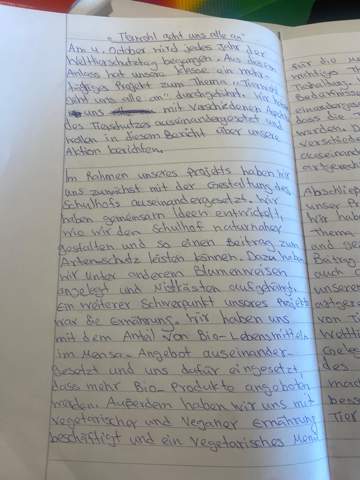 „Tierwohl geht uns alle an"
Am 4. Oktober wird jedes Jahr der
Welttierschutztag begangen. Aus diesem
Anlass hat unsere Klasse ein mehr-
tägiges Projekt zum Thema „Tierwohl
geht uns alle an" durchgeführt. Wir haben
uns mit verschiedenen Aspekten
des Tierschutzes auseinandergesetzt und
wollen in diesem Bericht über unsere
Aktion berichten.
Im Rahmen unseres Projekts haben wir
uns zunächst mit der Gestaltung des
Schulhofs auseinandergesetzt. Wir
haben gemeinsam Ideen entwickelt,
wie wir den Schulhof naturnaher
gestalten und so einen Beitrag zum
Artenschutz leisten können. Dazu haben
wir unter anderem Blumenwiesen
angelegt und Nistkästen aufgehängt.
Ein weiterer Schwerpunkt unseres Projekts
war die Ernährung. Wir haben uns
mit dem Anteil von Bio-Lebensmitteln
im Mensa-Angebot auseinander-
gesetzt und uns dafür eingesetzt,
dass mehr Bio-Produkte angeboten
werden. Außerdem haben wir uns mit
vegetarischer und veganer Ernährung
beschäftigt und ein vegetarisches Menü
für die M
wichtiges
Tierhaltung.
Bedürfnisse
einandergese
dass die T
werden.
verschiede
auseinand
artgerech
Abschlie
unser Pr
Wir hab
Thema
und ge
Beitrag
auch
unseren
artger
von Ti
Weltti
Gele
des
mac
bess
Tier